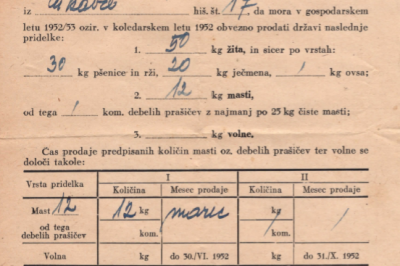 iz Ukavci hiš. št. 17, da mora v gospodarskem
letu 1952/53 ozir. v koledarskem letu 1952 obvezno prodati državi naslednje
pridelke:
1. 50 kg žita, in sicer po vrstah:
30 kg pšenice in rži, 20 kg ječmena, / kg ovsa;
2. 12 kg masti,
od tega / kom. debelih prašičev z najmanj po 25 kg čiste masti;
3. kg volne,
Čas prodaje predpisanih količin masti oz. debelih prašičev ter volne se
določi takole:
Vrsta pridelka I II
Količina Mesec prodaje Količina Mesec prodaje
Mast 12 12 kg marec kg /
od tega debelih prašičev kom. / kom.
Volna kg do 30./VI. 1952 kg do 31./X. 1952